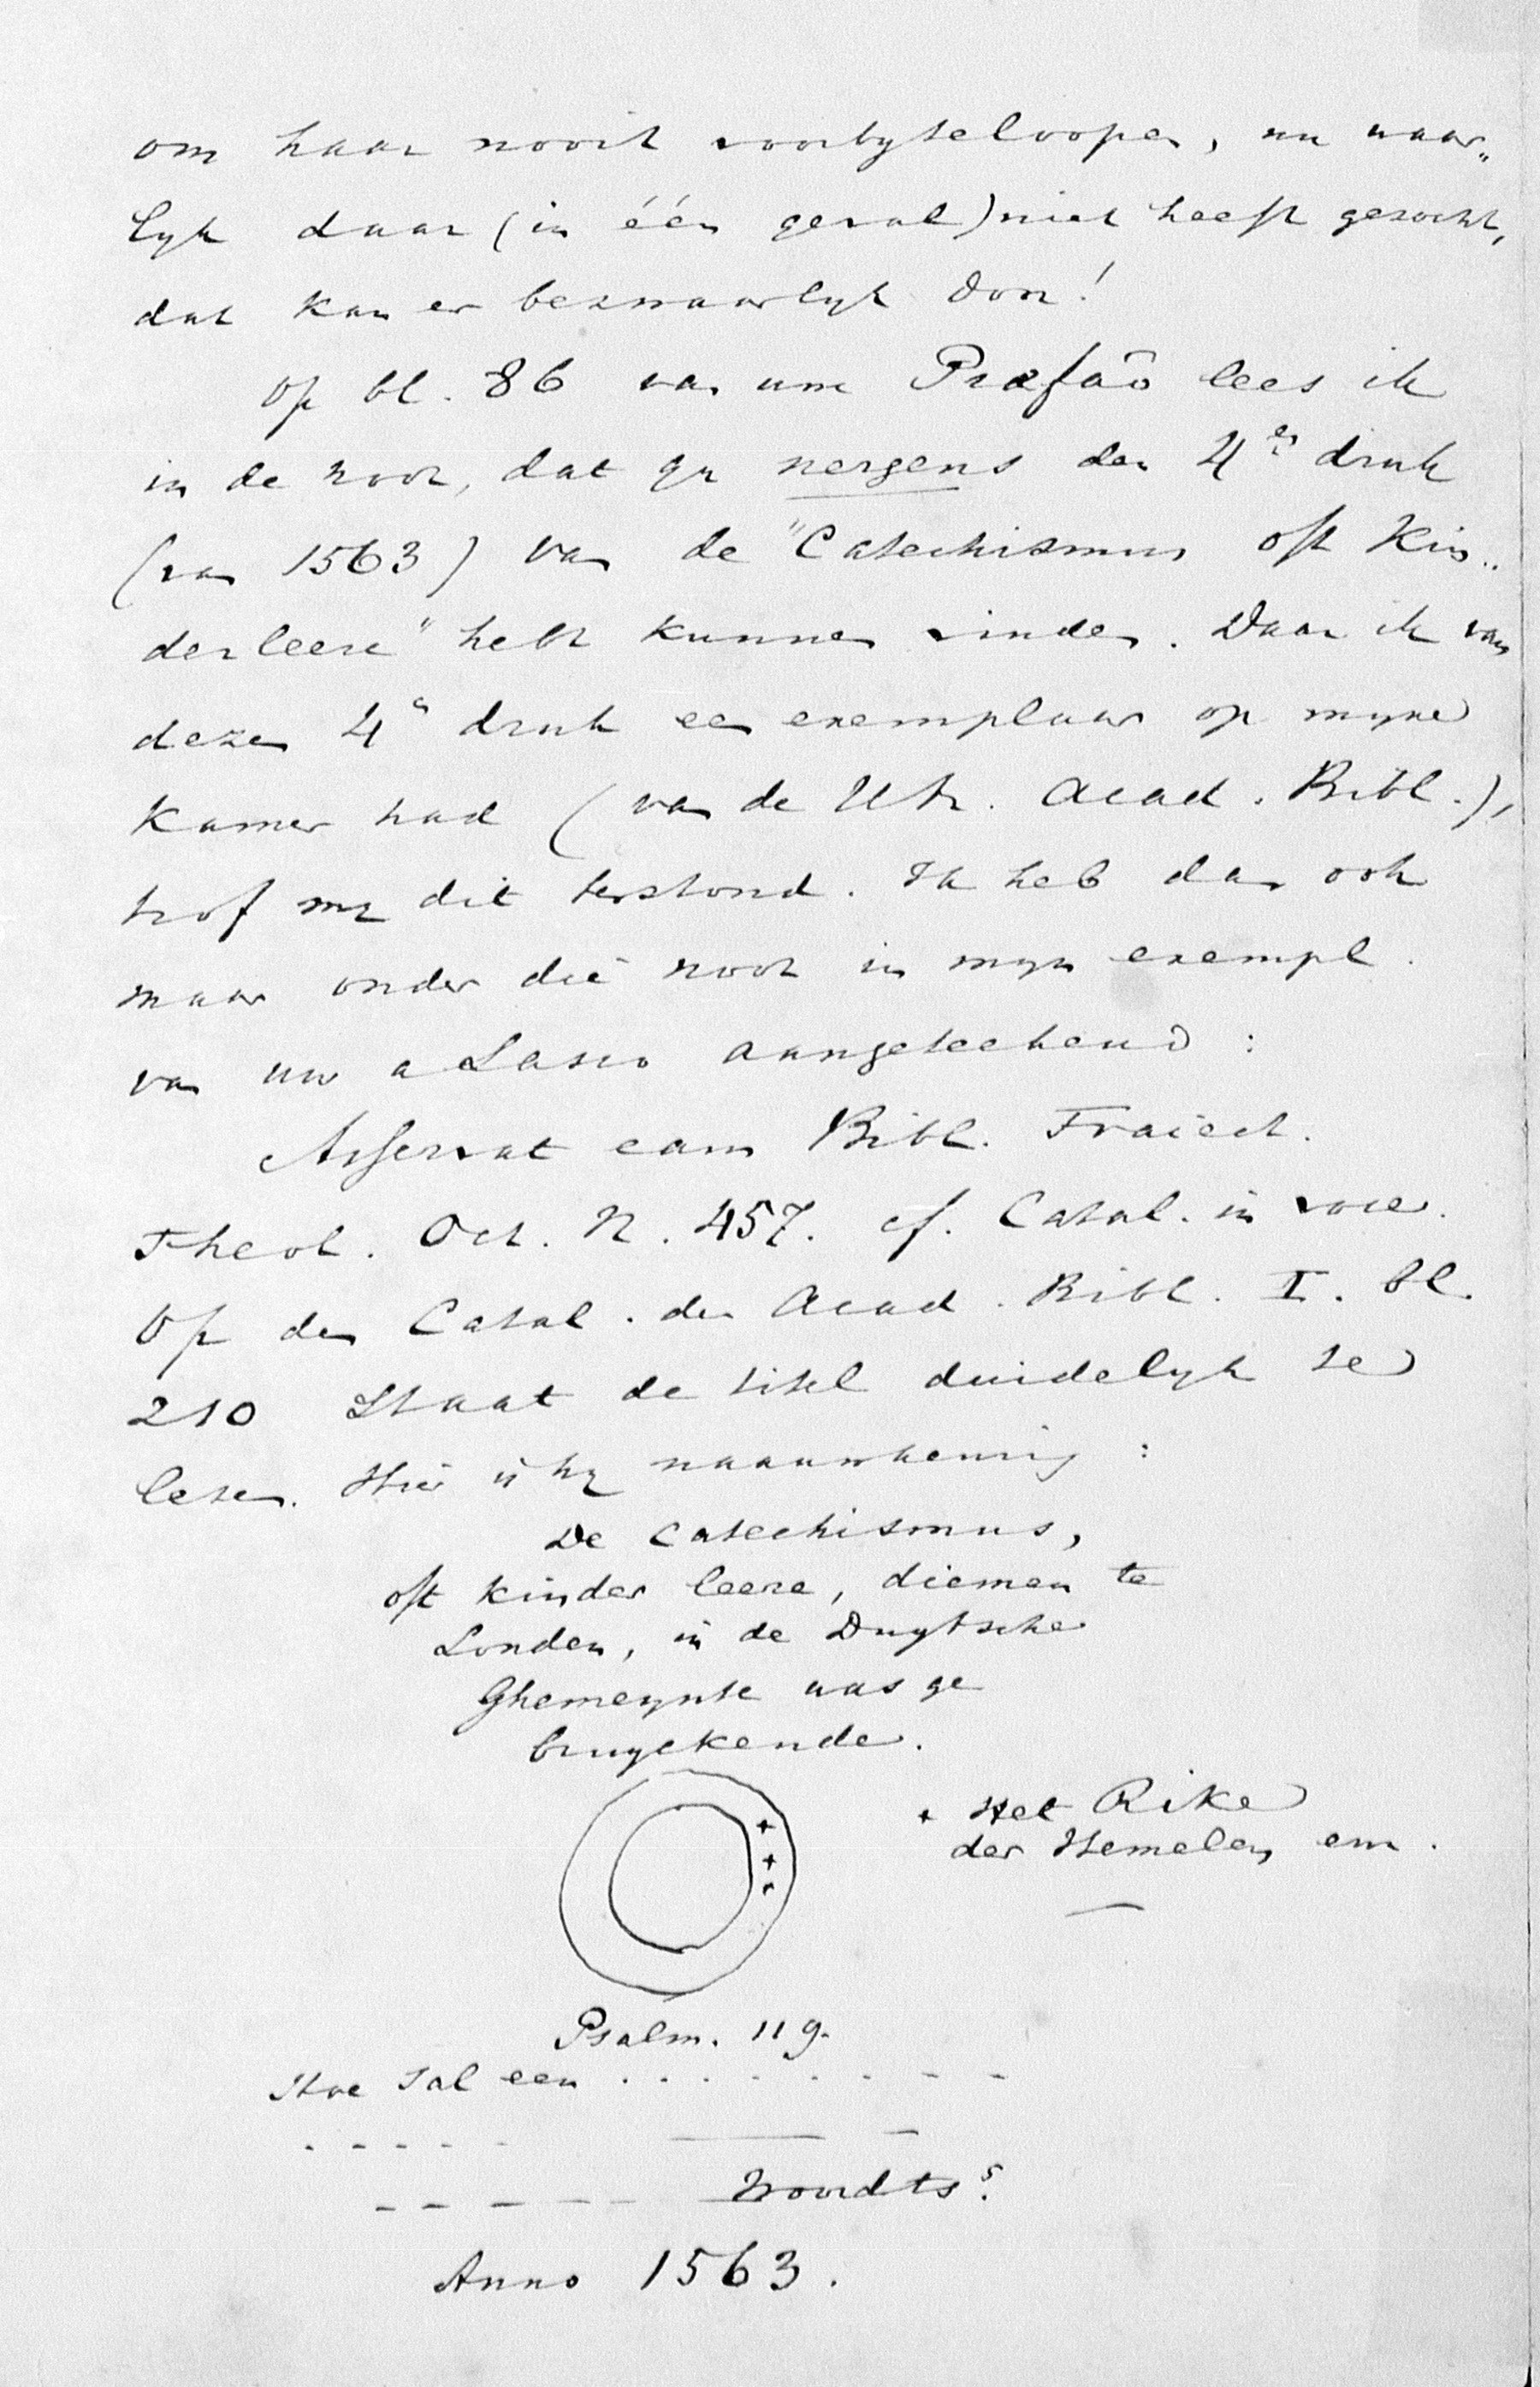 om haar nooit voorbyteloopen, nu waar„
lyk daar (in één geval) niet heeft gezocht,
dat kan er bezwaarlyk door!
Op bl. 86 van uwe Præfaõ lees ik
in de noot, dat gy nergens den 4en druk
(van 1563) van de "Catechismus oft Kin„
derleere" hebt kunnen vinden. Daar ik van
dezen 4n druk een exemplaar op myne
kamer had (van de Utr. Acad. Bibl.),
trof my dit terstond. Ik heb dan ook
maar onder die noot in myn exempl.
van uw a Lasco aangeteekend:
Asservat eam Bibl. Traiect.
Theol. Oct. N. 457. cf. Catal. in voce.
Op den Catal. der Acad. Bibl. I. bl.
210 staat de titel duidelyk te
lezen. Hier is hy naauwkeurig:
De Catechismus,
oft kinder leere, diemen te
Londen, in de Duytsche
Ghemeynte was ge
bruyckende.
+ Het Rike
der Hemelen em.
+
+
+
Psalm. 119.
Hoe sal een . . . . . . - - -
. - - - -
- - - - - - Woordts?
Anno 1563.